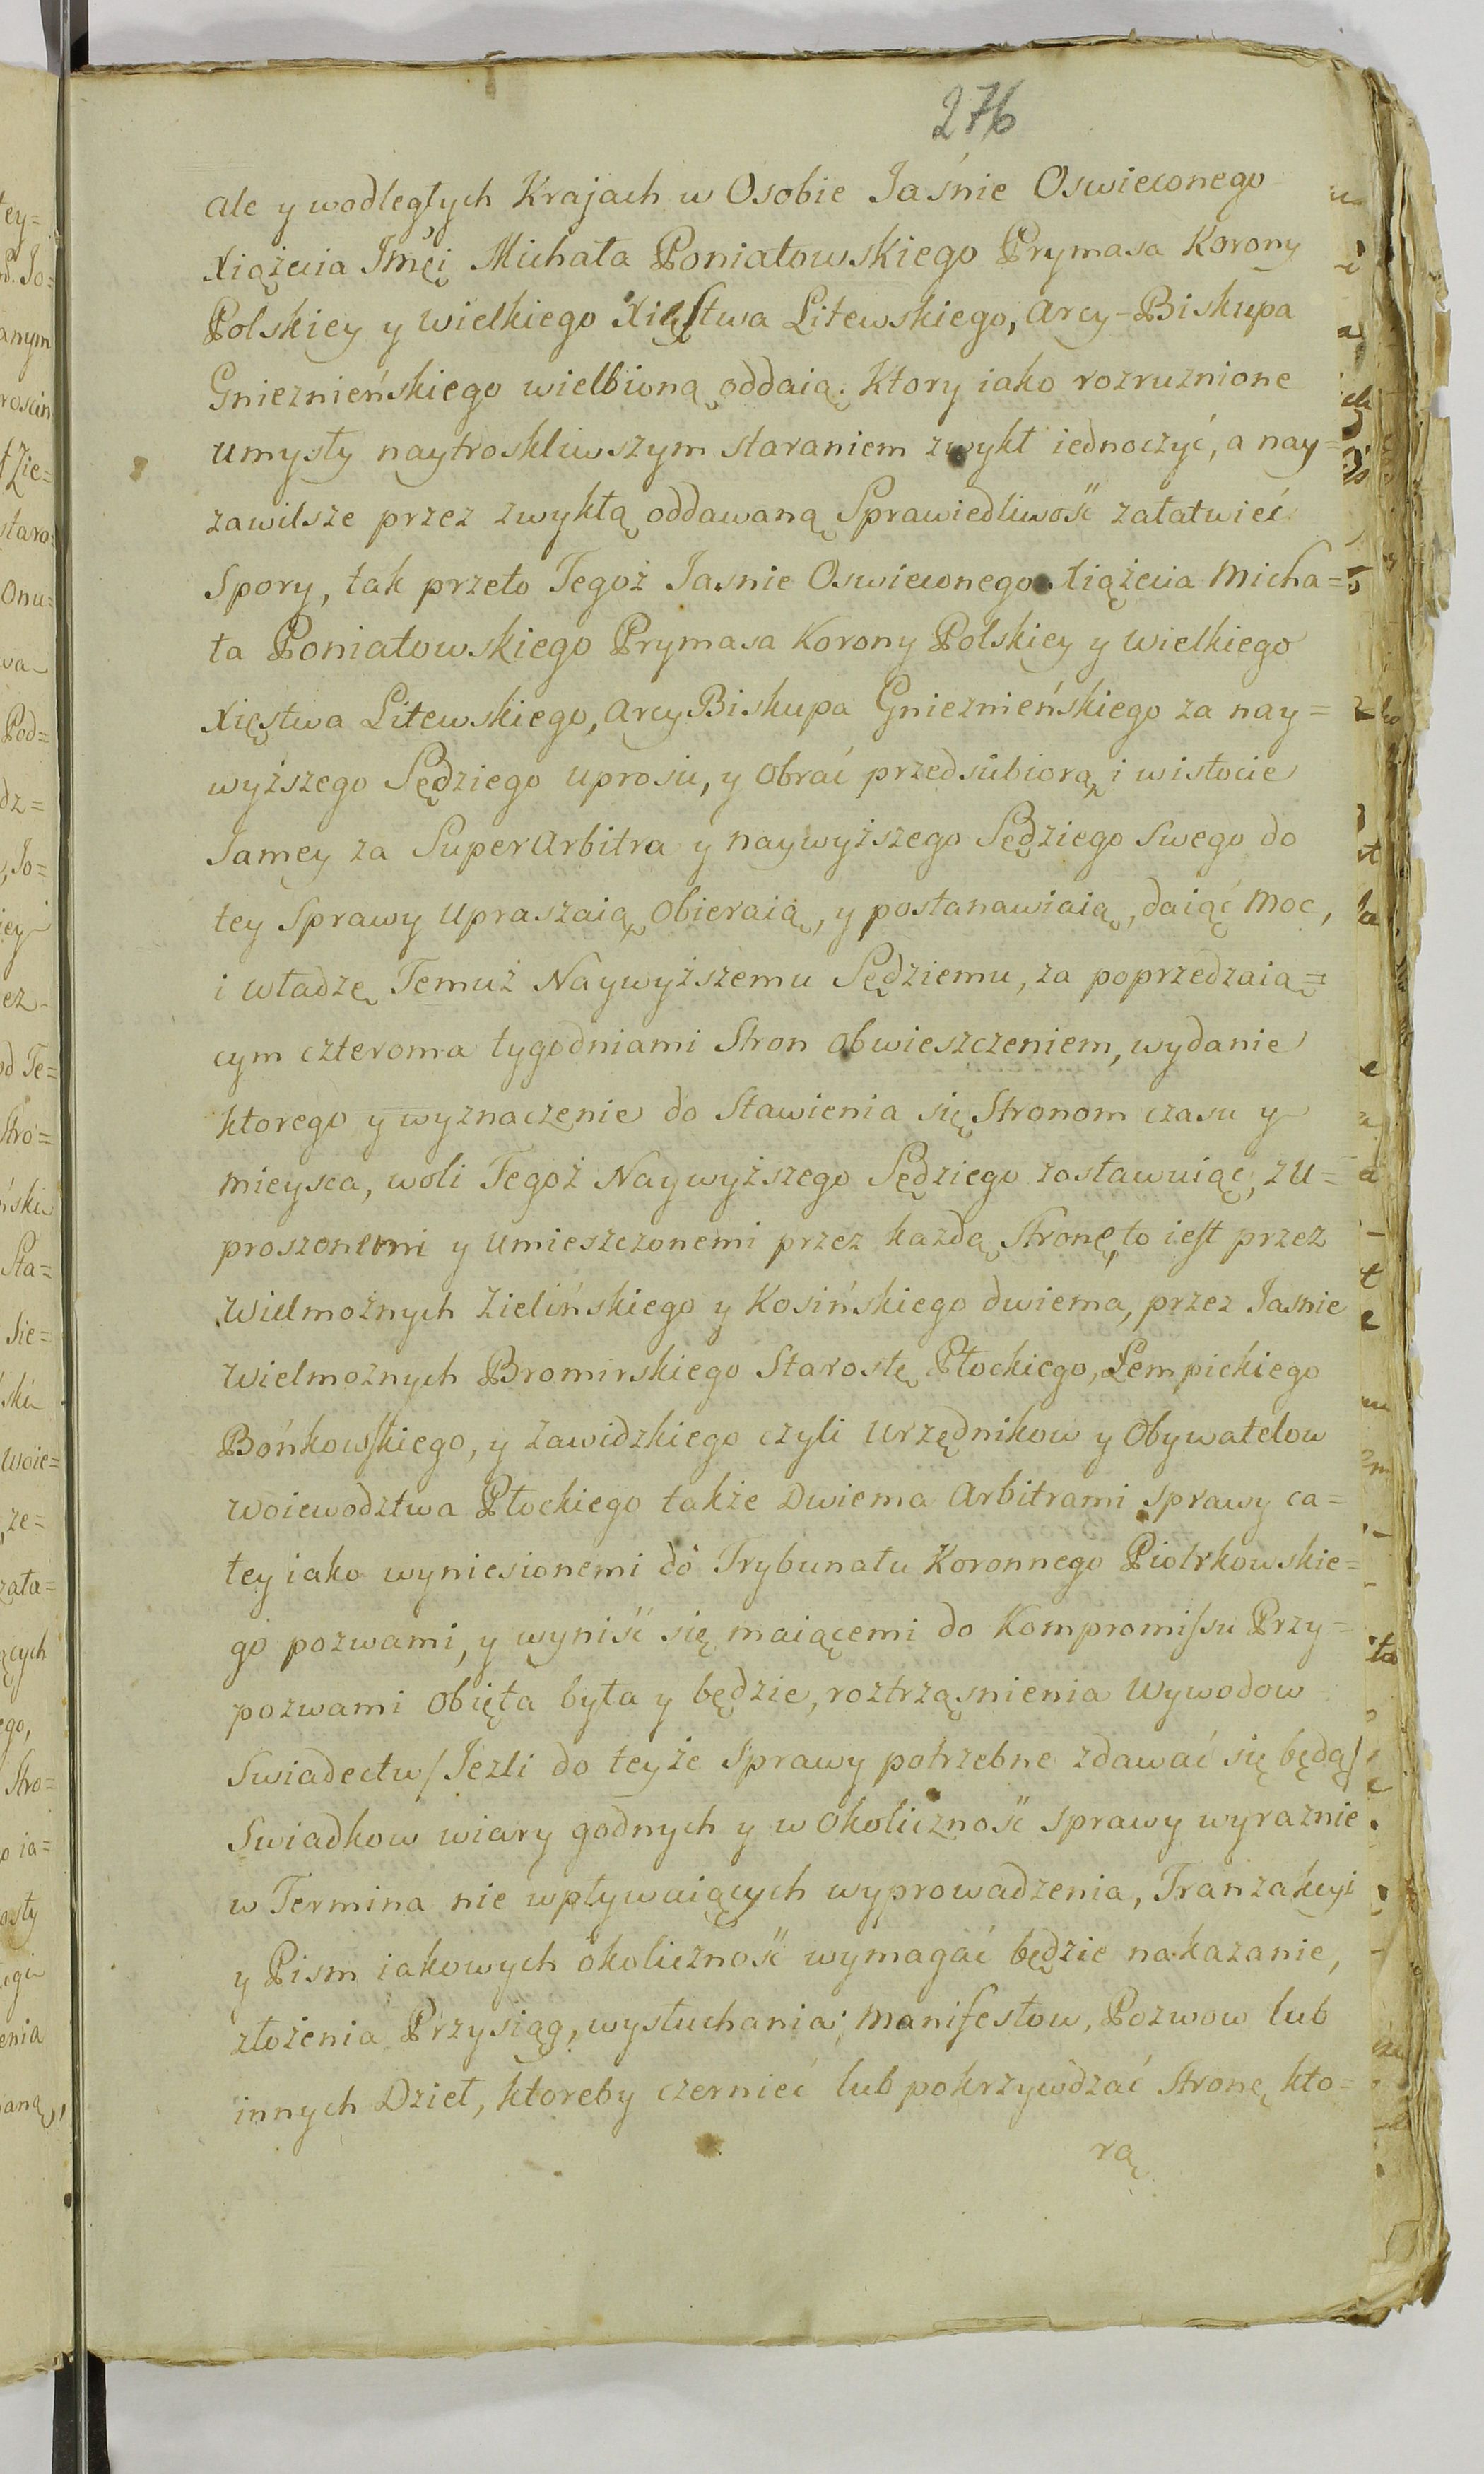 276
ale y wodległych Krajach w Osobie Jaśnie Oswieconego
Xiążęcia Jmći Michała Poniatowskiego Prymasa Korony
Polskiey y Wielkiego Xięstwa Litewskiego, Arcy-Biskupa
Gnieznieńskiego wielbioną oddaią. Ktory iako rozruznione
umysły naytroskliwszym staraniem zwykł iednoczyć, a nay=
zawilsze przez zwykłą oddawaną Sprawiedliwość załatwieć
Spory, tak przeto Tegoż Jasnie Oswieconego Xiążęcia Micha=
ła Poniatowskiego Prymasa Korony Polskiey y Wielkiego
Xięstwa Litewskiego, ArcyBiskupa Gnieznieńskiego za nay=
wyższego Sędziego uprosić, y Obrać przedsiubiorą, i wistocie
Samey za SuperArbitra y naywyższego Sędziego Swego do
tey Sprawy Upraszaią, Obieraią, y postanawiaią, daiąć Moc,
i władzę Temuż Naywyższemu Sędziemu, za poprzedzaią=
cym czteroma tygodniami Stron obwieszczeniem, wydanie
ktorego y wyznaczenie do Stawienia się Stronom czasu y
mieysca, woli Tegoż Naywyższego Sędziego zostawuiąc, z u=
proszonemi y umieszczonemi przez każdą Stronę, to iest przez
Wielmożnych Zielińskiego y Kosińskiego dwiema, przez Jasnie
Wielmożnych Bromirskiego Starostę Płockiego, Lempickiego
Bońkowskiego, y Zawidzkiego czyli Urzędnikow y Obywatelow
Woiewodztwa Płockiego także Dwiema Arbitrami sprawy ca=
łey iako wyniesionemi do Trybunału Koronnego Piotrkowskie=
go pozwami, y wyniść się maiącemi do Kompromissu Przy=
pozwami Obięta była y będzie, roztrząsnienia Wywodow
Swiadectw / Jezli do teyże Sprawy potrzebne zdawać się będą /
Swiadkow wiary godnych y w Okoliczność sprawy wyraznie
w Termina nie wpływaiących wyprowadzenia, Tranzakcyi
y Pism iakowych okoliczność wymagać będzie nakazanie,
złożenia Przysiąg, wysłuchania; Manifestow, Pozwow lub
innych Dzieł, ktoreby czernieć lub pokrzywdzać Stronę kto=
rą